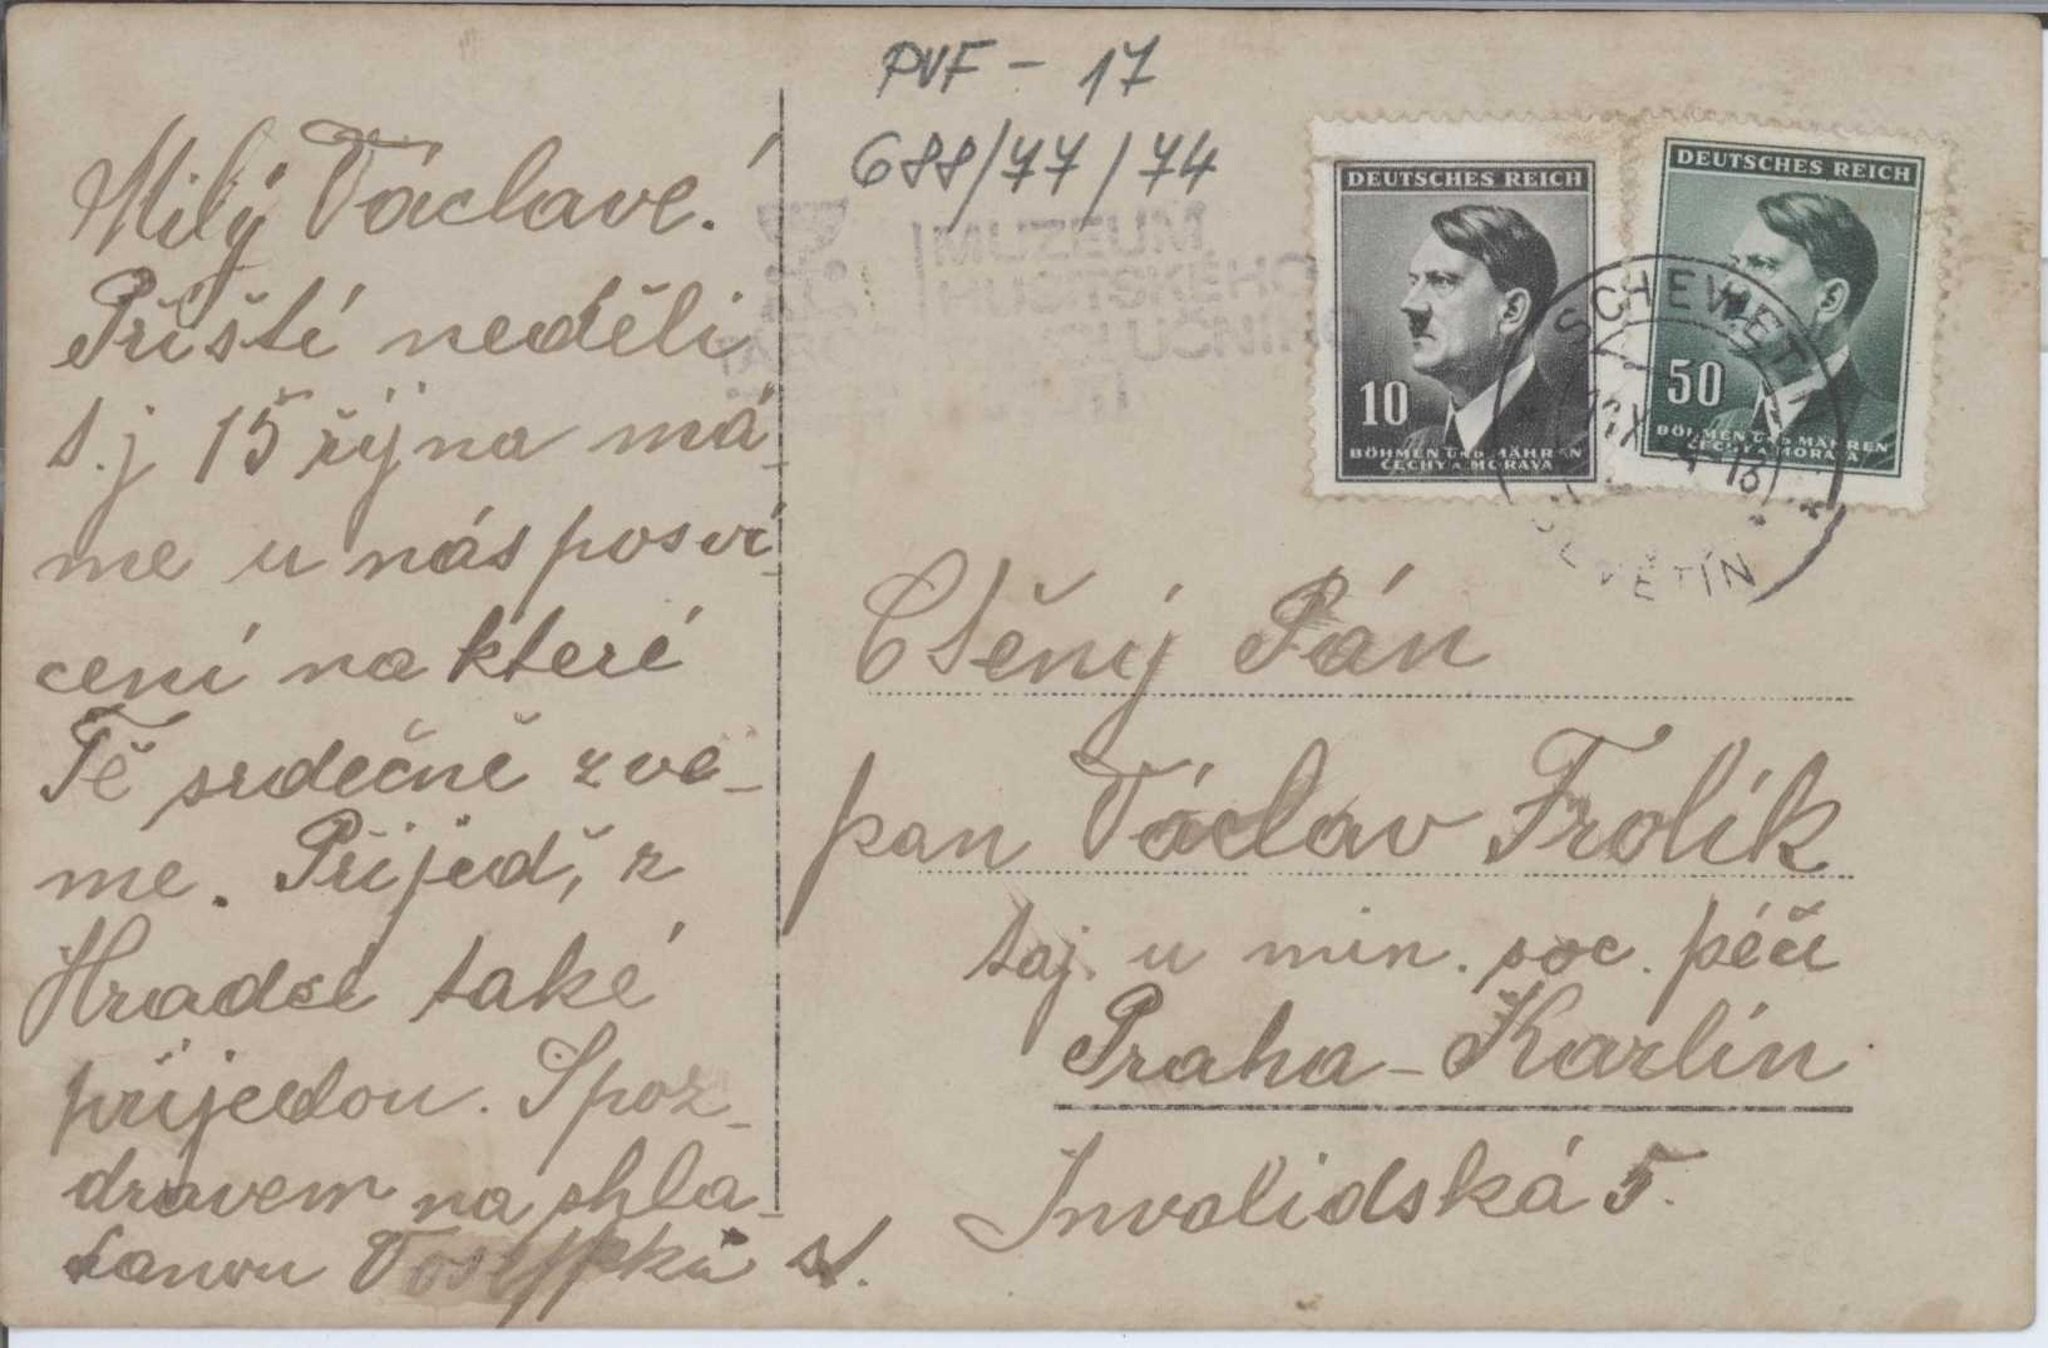 PVF - 17
688/77/74
MUZEUM
HUSITSKÉHO
Milý Václave!
Příští neděli
t.j 15 října má-
me u nás posví-
cení na které
Tě srdečně zve-
me. Přijeď, z
Hradce také
přijedou. S poz-
dravem na shla-
danou
st.
DEUTSCHES REICH
10
BÖHMEN UND MÄHREN
ČECHY A MORAVA
DEUTSCHES REICH
50
BÖHMEN UND MÄHREN
ČECHY A MORAVA
SCHEWETIN
ŠEVĚTÍN
Ctěný Pán
pan Václav Frolík
taj. u min. soc. péči
Praha - Karlín
Invalidská 5.